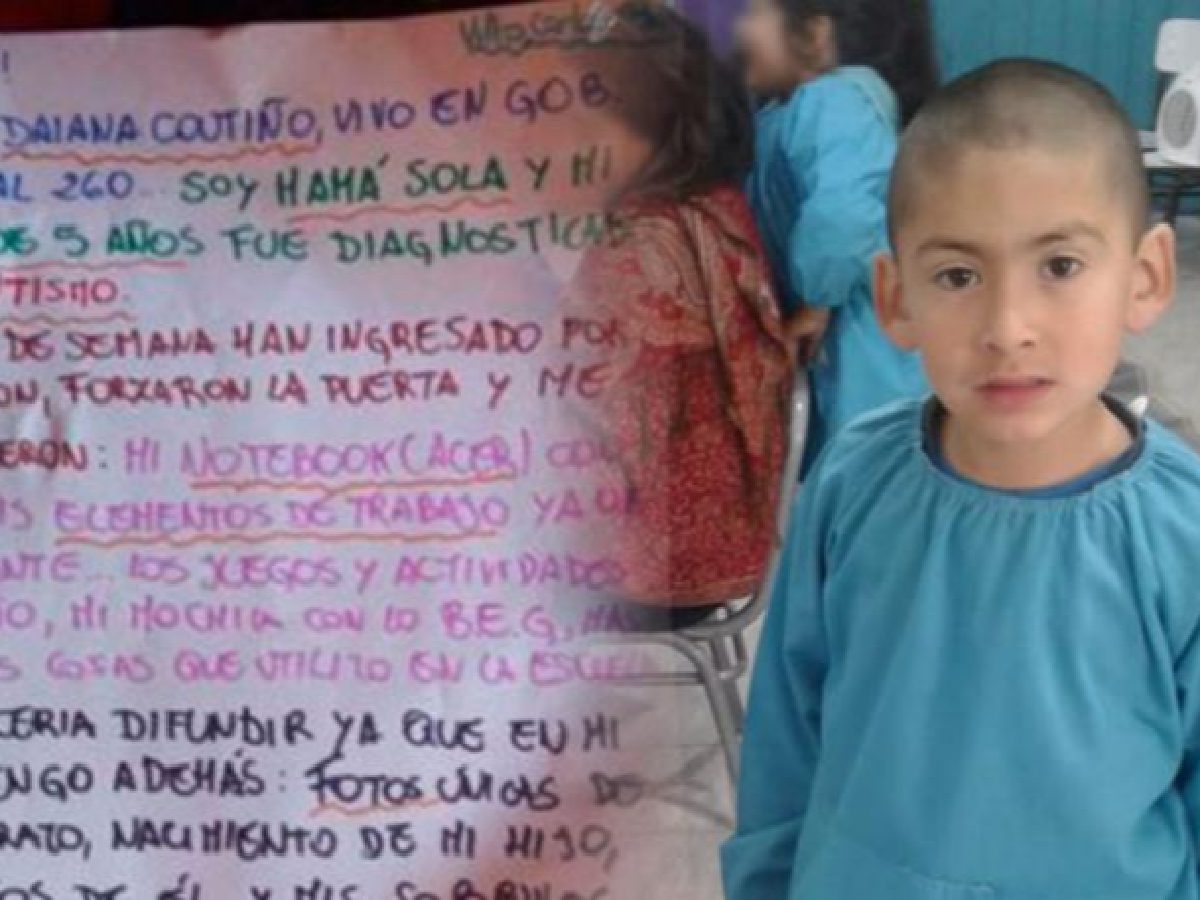 !
DAIANA COUTIÑO, VIVO EN GOB.
AL 260.. SOY MAMÁ SOLA Y MI
DE 5 AÑOS FUE DIAGNOSTICAD
TISMO.
DE SEMANA HAN INGRESADO POR
ON, FORXARON LA PUERTA Y ME
ERON: MI NOTEBOOK (ACER) CON
IS ELEMENTOS DE TRABAJO YA QU
NTE... LOS JUEGOS Y ACTIVIDADES
ÑO, MI MOCHILA CON LO B.E.G, MAS
S COSAS QUE UTILIZO EN LA ESCUEL
CERIA DIFUNDIR YA QUE EN MI
NGO ADEMÁS: FOTOS ÚNICAS DE
RATO, NACIMIENTO DE MI HIJO,
OS DE ÉL Y MIS SOBRINOS